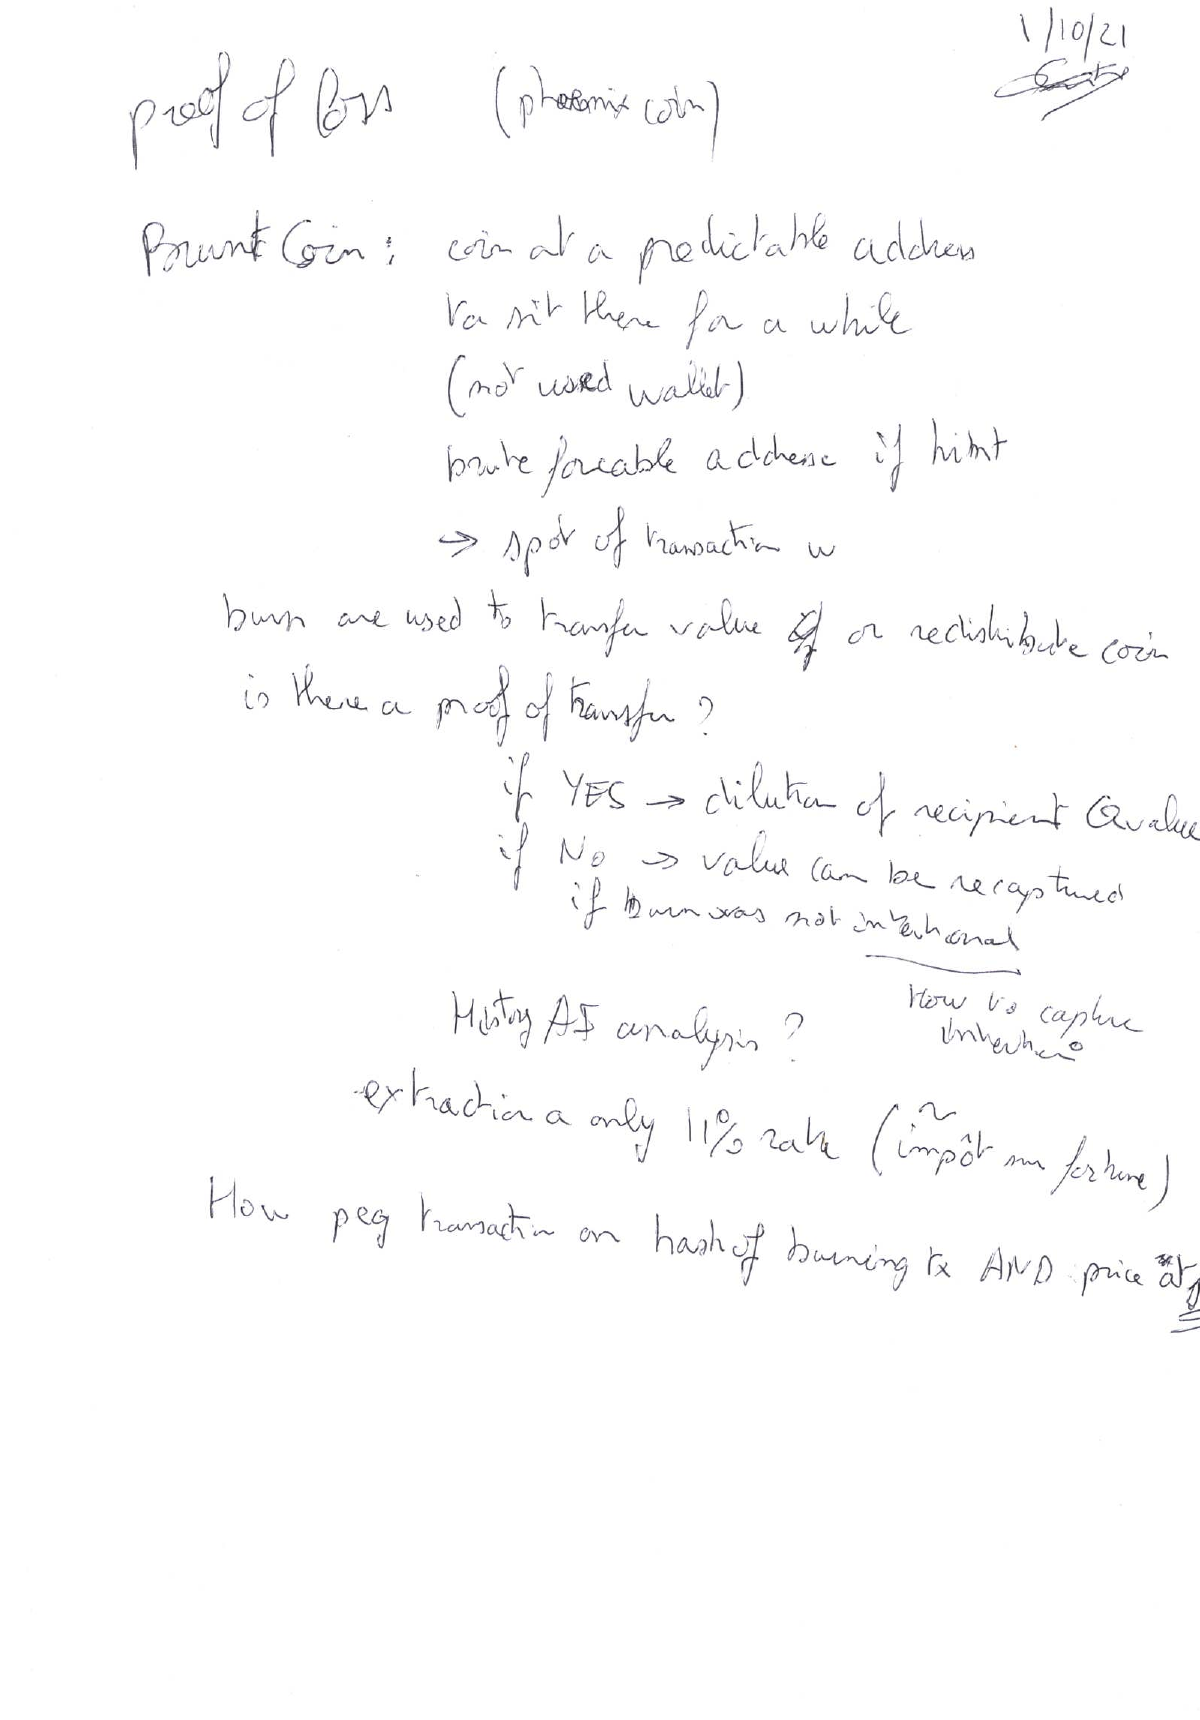 1/10/21
proof of loss (phoenix coin)
Burnt Coin : coin at a predictable address
to sit there for a while
(not used wallet)
brute forceable address if hint
→ spot of transaction w
burn are used to transfer value or redistribute coin
is there a proof of transfer ?
if YES → dilution of recipient Qvalue
if NO → value can be recaptured
if burn was not intentional
How to capture
intention
History AI analysis ?
extraction a only 11% rate (~ impôt sur fortune)
How peg transaction on hash of burning tx AND price at